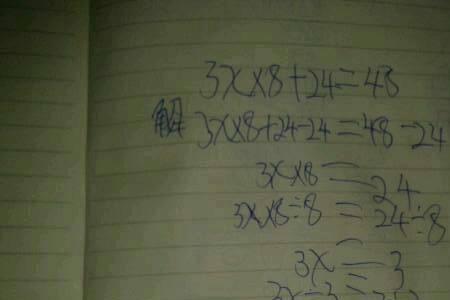 3x×8+24=48
解 3x×8+24-24=48-24
3x×8=24
3x×8÷8=24÷8
3x=3
3x÷3=3÷3